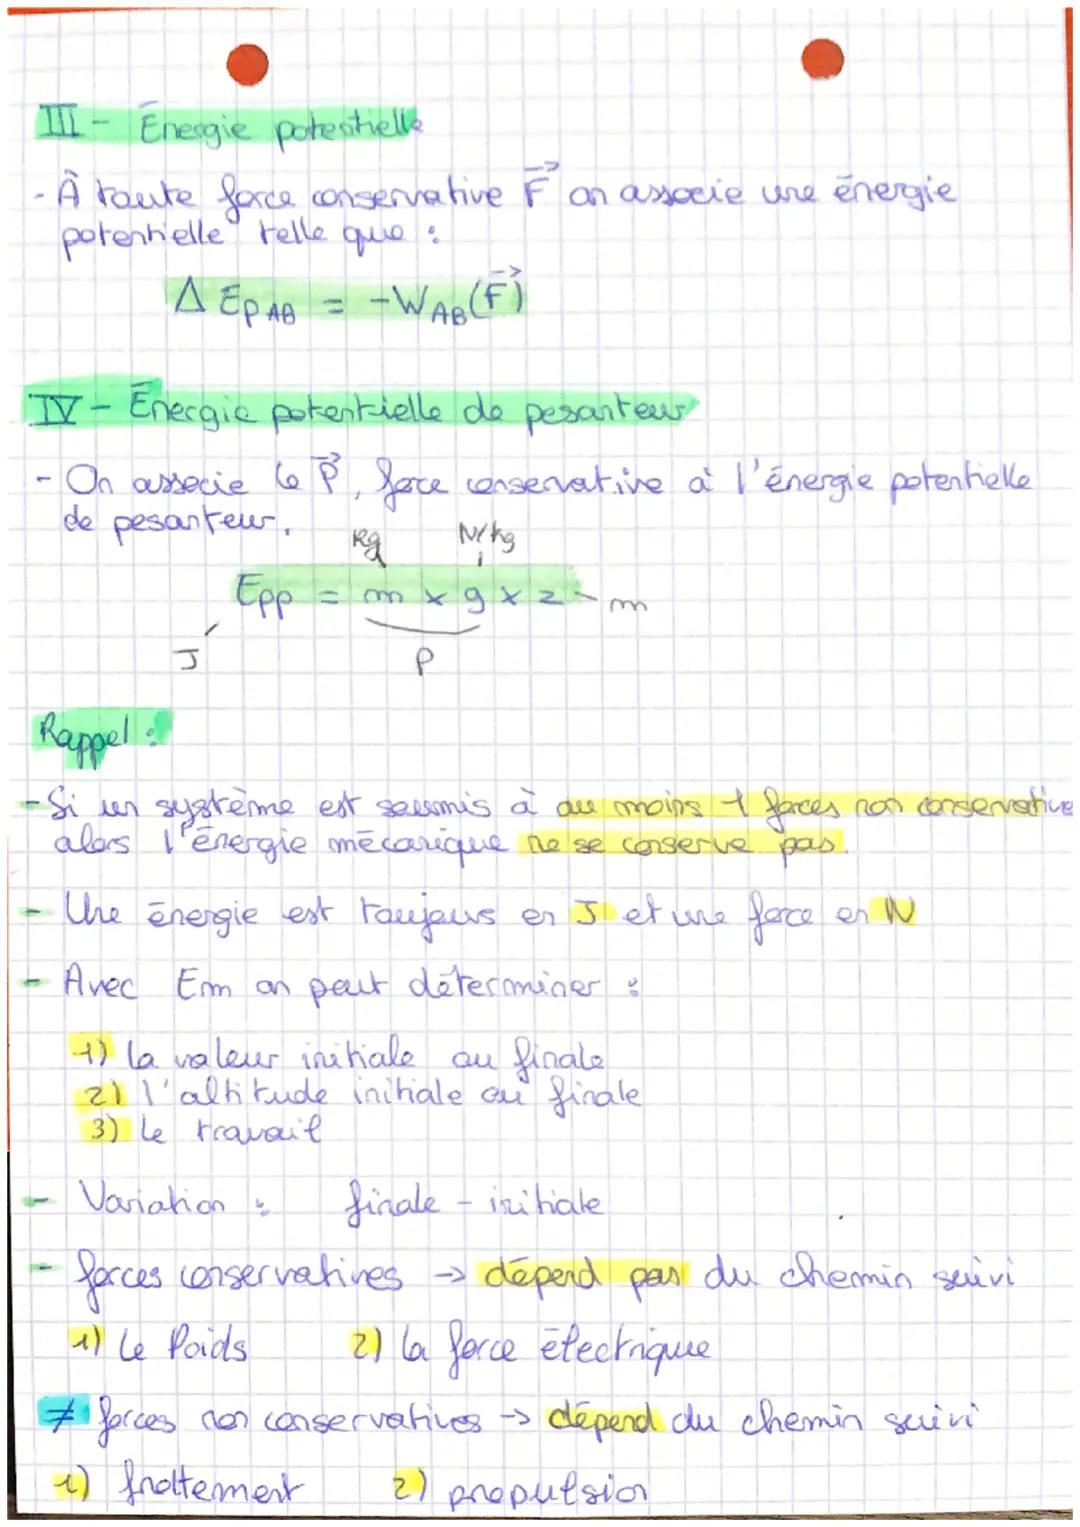 III - Énergie potentielle
- À toute force conservative F→ on associe une énergie
potentielle telle que :
Δ Ep AB = - W AB (F→)
IV - Énergie potentielle de pesanteur
- On associe le P→, force conservative à l'énergie potentielle
de pesanteur.
kg N/kg
Epp = m x g x z - m
J P
Rappel :
- Si un système est soumis à au moins 1 forces non conservative
alors l'énergie mécanique ne se conserve pas.
- Une énergie est toujours en J et une force en N
- Avec Em on peut déterminer :
1) la valeur initiale ou finale
2) l'altitude initiale ou finale
3) le travail
- Variation : finale - initiale
- forces conservatives → dépend pas du chemin suivi
1) le Poids 2) la force électrique
≠ forces non conservatives → dépend du chemin suivi
1) frottement 2) propulsion